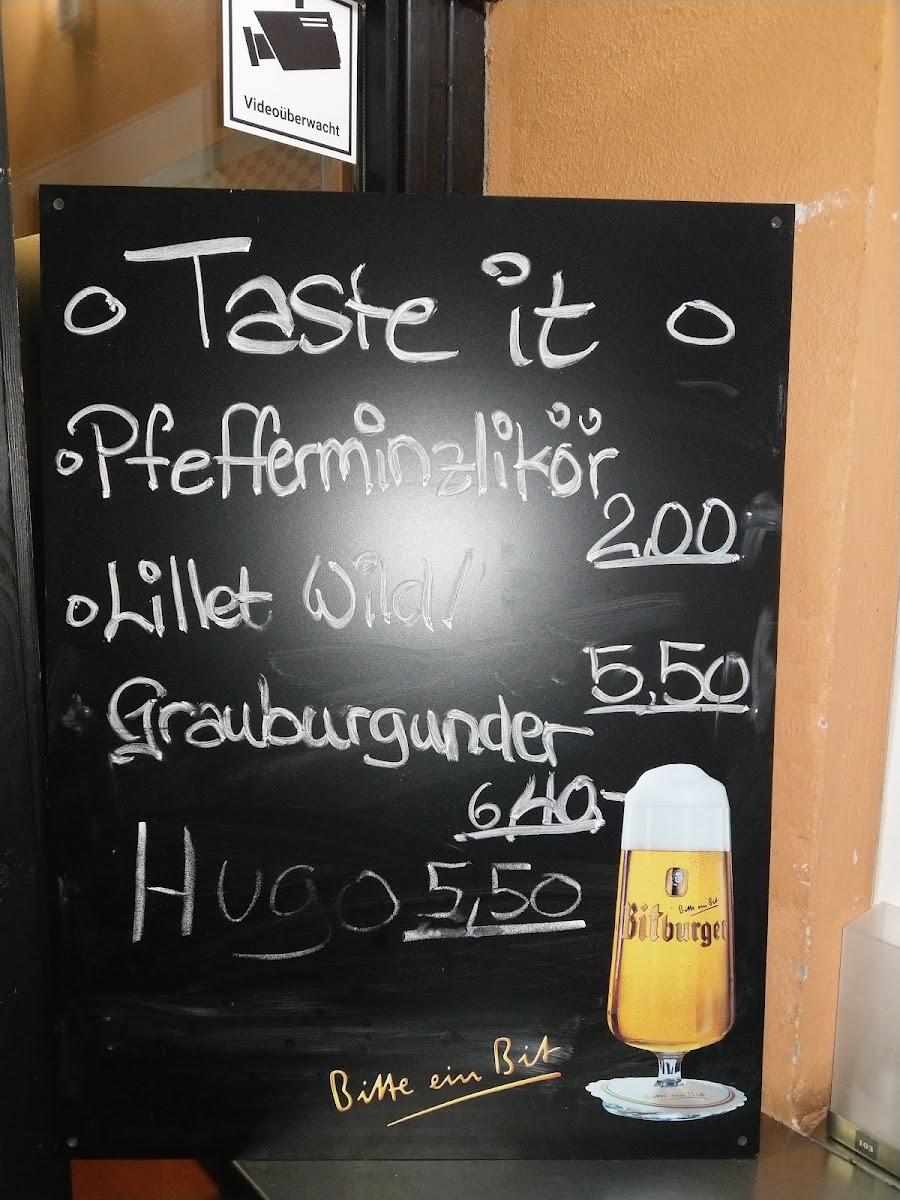 Videoüberwacht
Taste it
Pfefferminzlikör
2,00
Lillet Wild/
5,50
Grauburgunder
6,40
Hugo 5,50
Bitte ein Bit
Bitburger
Bitte ein Bit
Bitte ein Bit
103